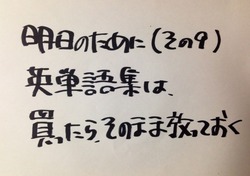 明日のために(その9)
英単語集は、
買ったら、そのまま放っておく